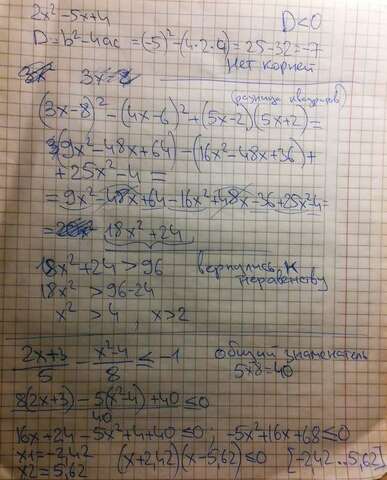 2x²-5x+4 D<0
D=b²-4ac=(-5)²-(4·2·4)=25-32=-7
Нет корней
3x=8
(разница квадратов)
(3x-8)²-(4x-6)²+(5x-2)(5x+2)=
(9x²-48x+64)-(16x²-48x+36)+
+25x²-4=
=9x²-48x+64-16x²+48x-36+25x²-4=
= 18x²+24
18x²+24>96 вернулись к
неравенству
18x²>96-24
x²>4, x>2
2x+3/5 - x²-4/8 ≤-1 общий знаменатель
5x8=40
8(2x+3)-5(x²-4)+40/40 ≤0
16x+24-5x²+4+40≤0; -5x²+16x+68≤0
x1=-2,42 (x+2,42)(x-5,62)≤0 [-2,42...5,62]
x2=5,62